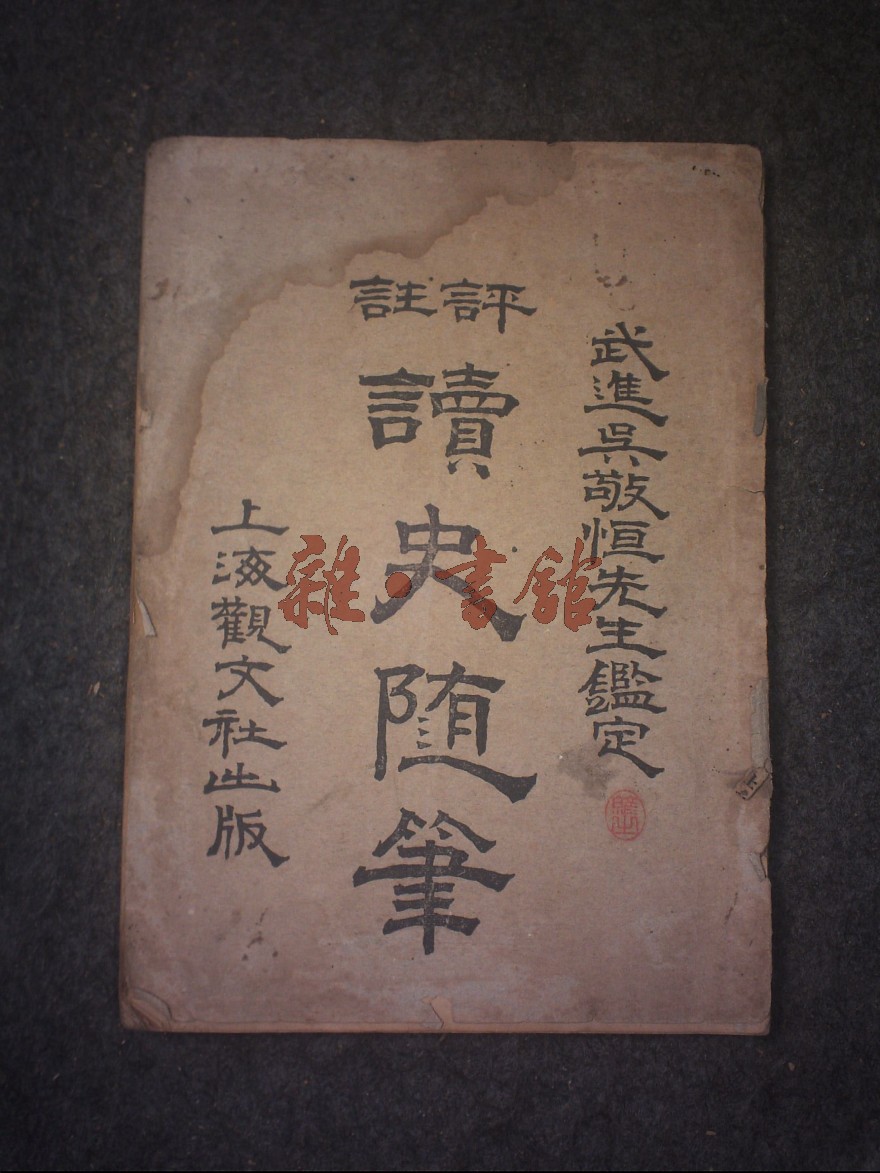 武進吳敬恒先生鑑定
評註
讀史随筆
上海觀文社出版
雜·書館